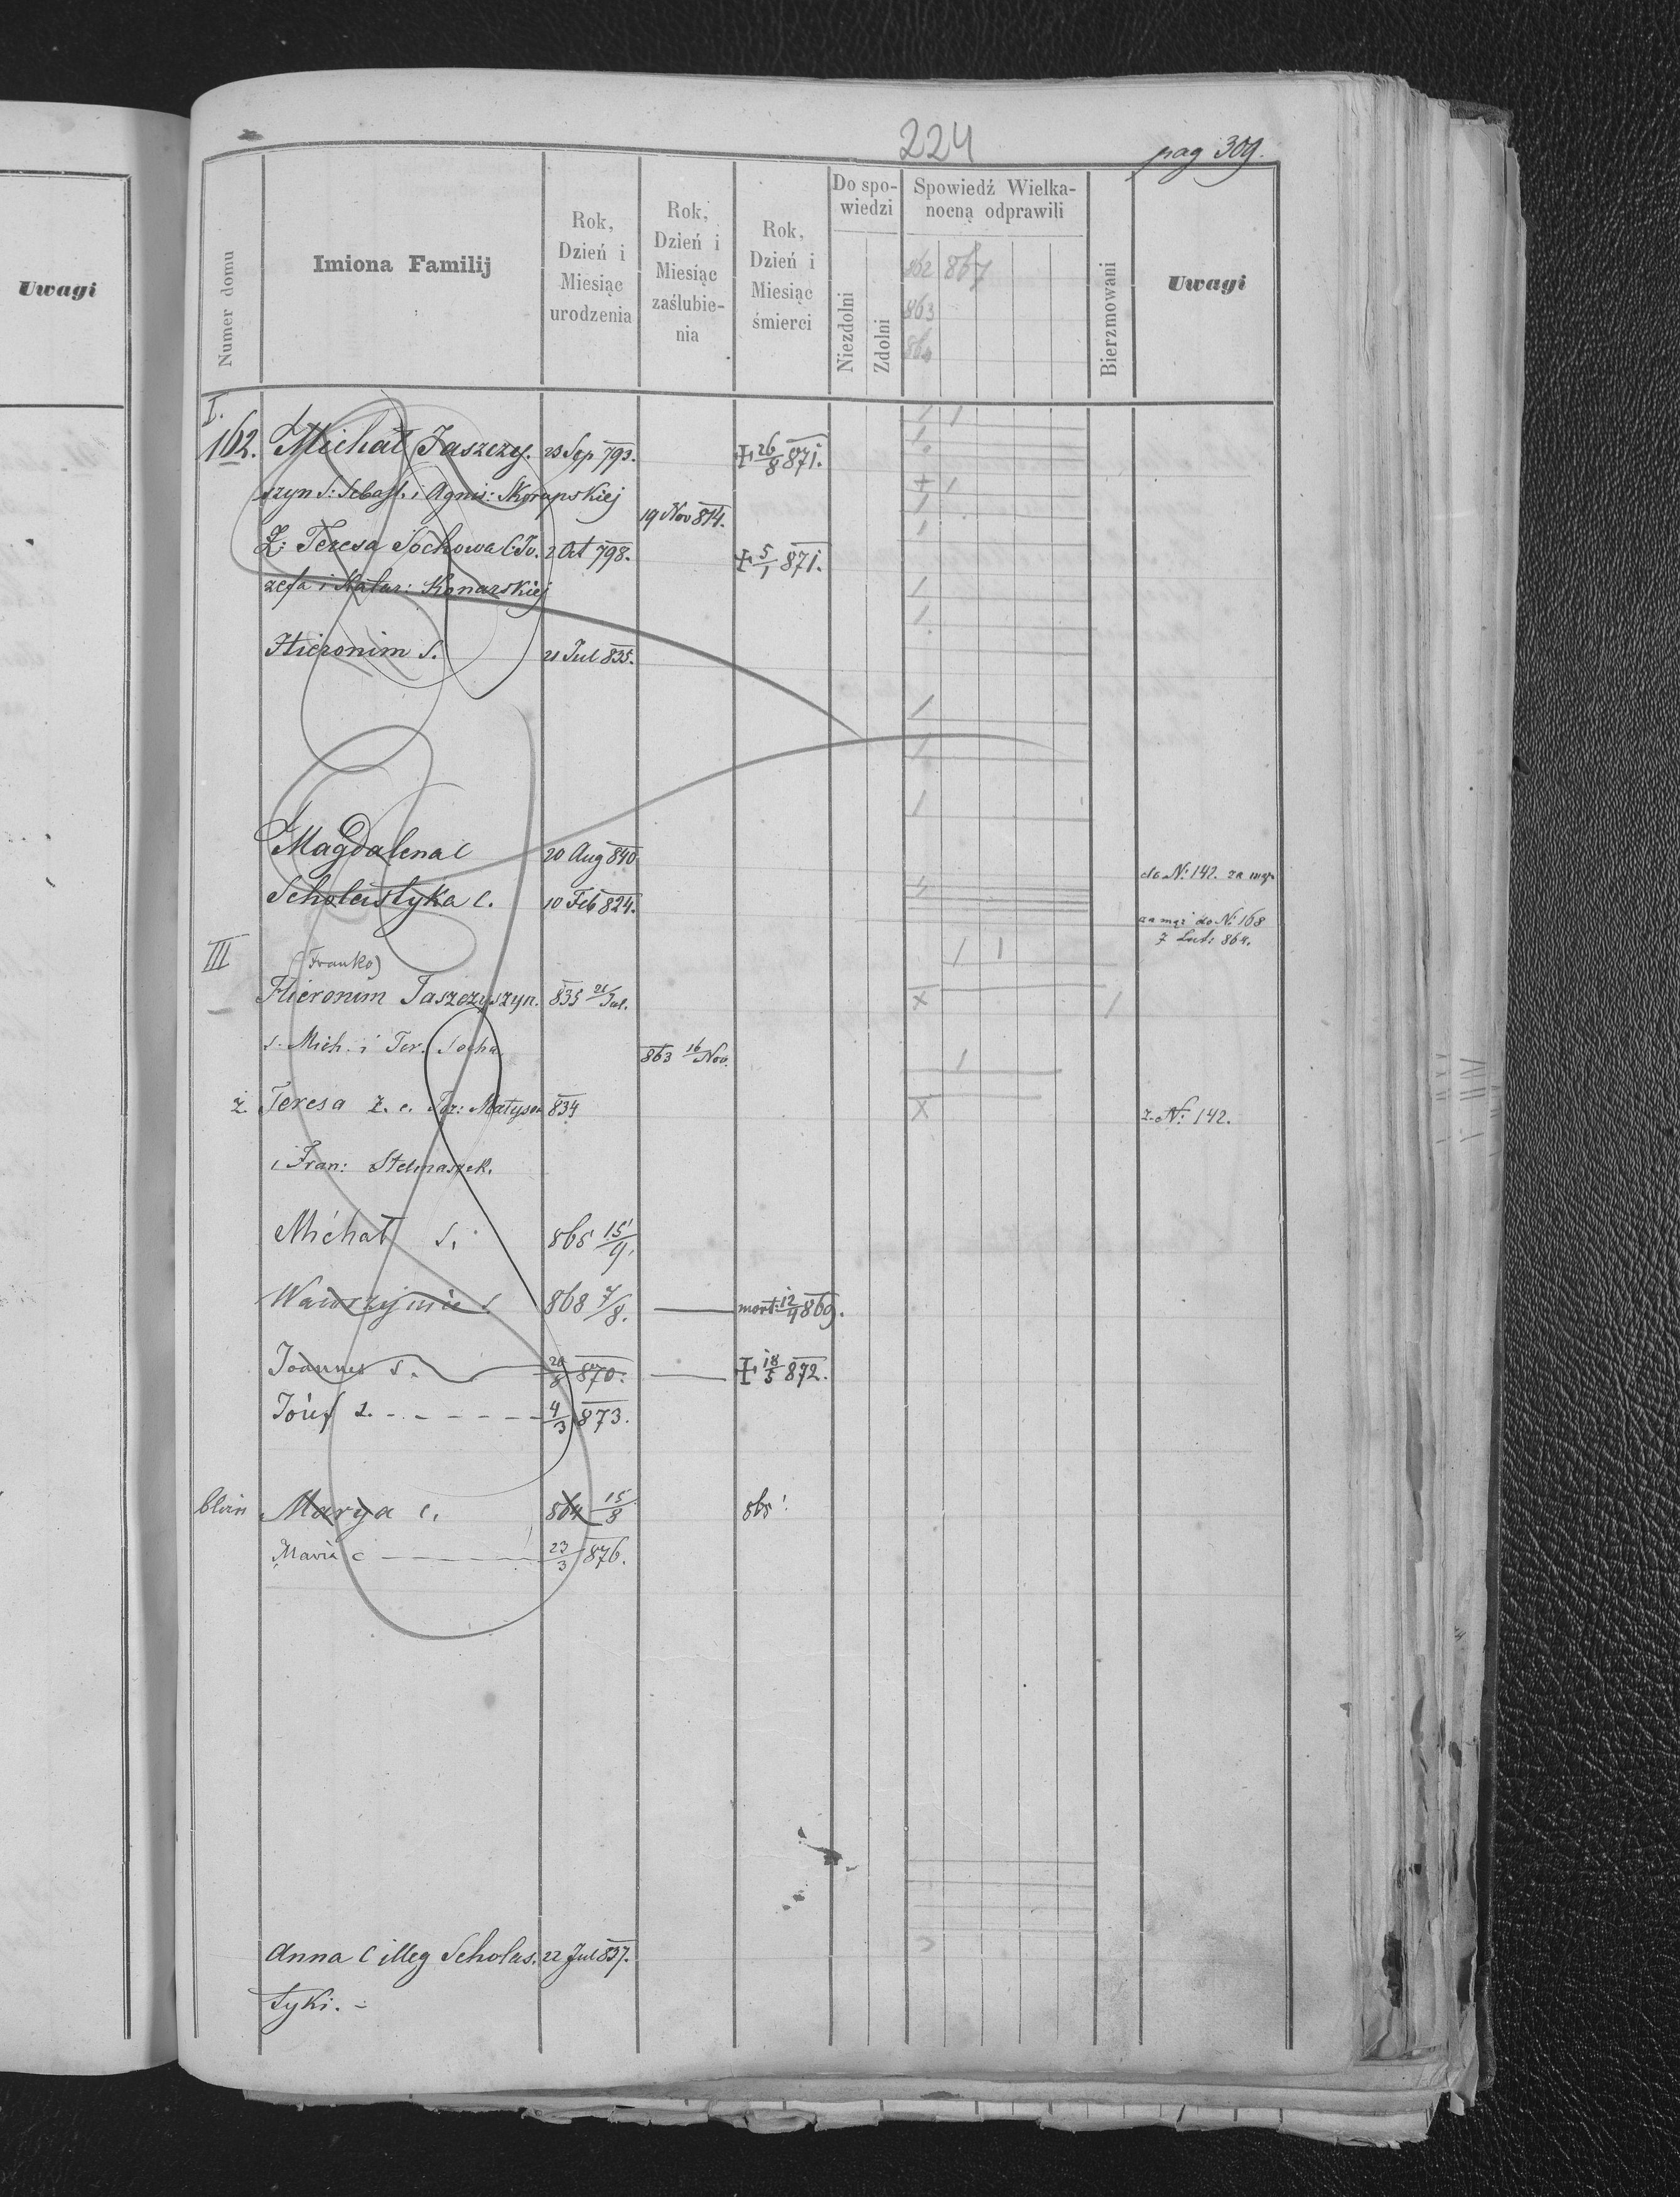 Uwagi
224
pag 309.
Numer domu
Imiona Familij
Rok, Dzień i Miesiąc urodzenia
Rok, Dzień i Miesiąc zaślubienia
Rok, Dzień i Miesiąc śmierci
Do spowiedzi
Niezdolni
Zdolni
Spowiedź Wielkanocną odprawili
862 867
863
864
Bierzmowani
Uwagi
I.
162. Michał Jaszczy- 23 Sep 793. + 26/8 871.
szyn S: Sebast. i Agnis: Skorupskiej
19 Nov 814.
Ż: Teresa Sochowa C. Jó- 2 Oct 798. + 5/1 871.
zefa i Katar: Konarskiej
Hieronim S. 21 Jul 835.
Magdalena C 20 Aug 840
do N: 142. za mąż
Scholastyka C. 10 Feb 824.
za mąż do N: 168
864.
III
(Franko)
Hieronim Jaszczyszyn. 835 21/Jul.
s. Mich. i Ter. Socha 863 16/Nov.
ż. Teresa Ż. c. Joz: Matysek 834 z N: 142.
i Fran: Stelmaszek.
Michał S. 865 15/9.
Wawrzyniec S 868 7/8. mort: 12/4 869.
Joannes S. 20/8 870. + 18/5 872.
Józef S. 4/3 873.
Marya C. 864 15/8 865
Maria C 23/3 876.
Anna C illeg Scholas- 22 Jul 837.
tyki. -